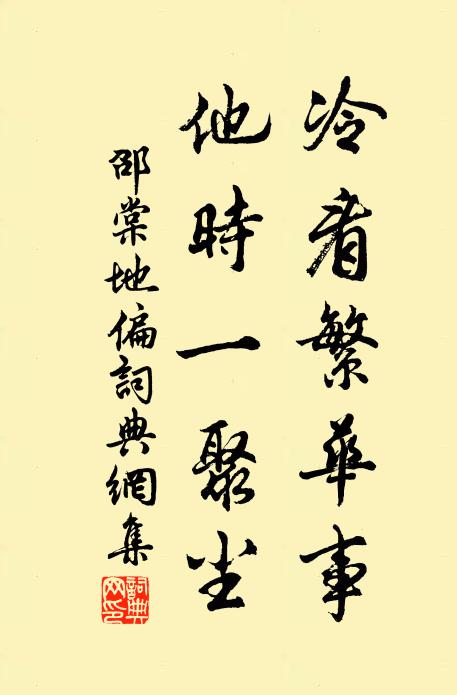 冷看繁華事
他時一聚尘
邵棠地偏詞典網集
詞典
网印